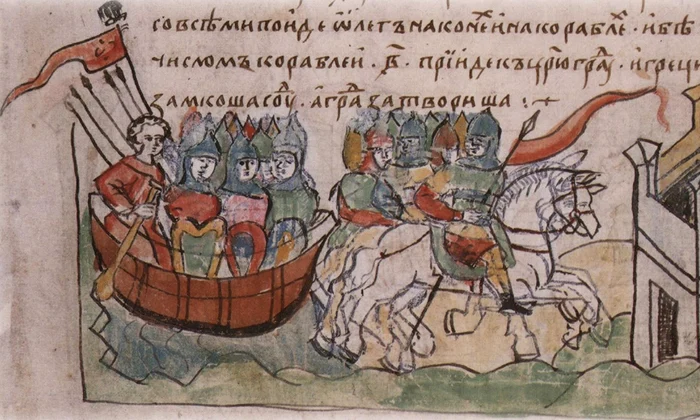 совсѣми поиде ѡлегъ наконеⷯ и накораблеⷯ · ибѣ
числомъ кораблеи · в҃ · прїиде къ цр҃юграⷣ · игреци
замкоша соуⷣ · аграⷣ затвориша :·